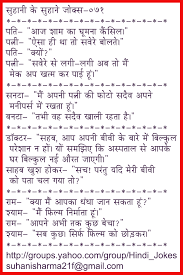 सुहानी के सुहाने जोक्स-०७१
*-*-*-*-*-*-*-*-*-*-*-*-*-*-*
पति- "आज शाम का घूमना कैंसिल।
पत्नी- "ऐसा ही था तो सवेरे बोलते।
पति- "क्यों?"
पत्नी- "सवेरे से लगी-लगी अब तो मैं
मेक अप खत्म कर पाई हूं।"
*-*-*-*-*-*-*-*-*-*-*-*-*-*-*
सन्टा- "मैं अपनी पत्नी की फोटो सदैव अपने
मनीपर्स में रखता हूं।"
बन्टा- "तभी वह सदैव खाली रहता है।"
*-*-*-*-*-*-*-*-*-*-*-*-*-*-*
डॉक्टर- "साहब, आप अपनी बीवी के बारे में बिल्कुल
परेशान न हों। यों समझिए कि अस्पताल से आपके
घर बिल्कुल नई औरत जाएगी।"
साहब खुश होकर- "सच! परंतु यदि मेरी बीवी
को पता चल गया तो?"
*-*-*-*-*-*-*-*-*-*-*-*-*-*-*
राम- "क्या मैं आपका धंधा जान सकता हूं?"
श्याम- "मैं फिल्म निर्माता हूं।"
राम- "आपने अभी तक कुछ बेचा?"
श्याम- "सब कुछ सिर्फ फिल्म को छोड़कर।"
*-*-*-*-*-*-*-*-*-*-*-*-*-*-*
http://groups.yahoo.com/group/Hindi_Jokes
suhanisharma21f@gmail.com